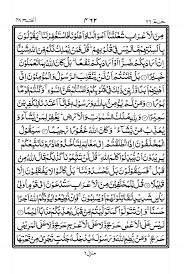 حٰمٓ ٢٦ الفتح ٤٨
مِنَ الْاَعْرَابِ شَغَلَتْنَاۤ اَمْوَالُنَا وَاَهْلُوْنَا فَاسْتَغْفِرْ لَنَا ۚ يَقُوْلُوْنَ
بِاَلْسِنَتِهِمْ مَّا لَيْسَ فِيْ قُلُوْبِهِمْ ؕ قُلْ فَمَنْ يَّمْلِكُ لَكُمْ مِّنَ اللّٰهِ شَيْـًٔا
اِنْ اَرَادَ بِكُمْ ضَرًّا اَوْ اَرَادَ بِكُمْ نَفْعًا ؕ بَلْ كَانَ اللّٰهُ بِمَا تَعْمَلُوْنَ
خَبِيْرًا ۝ بَلْ ظَنَنْتُمْ اَنْ لَّنْ يَّنْقَلِبَ الرَّسُوْلُ وَالْمُؤْمِنُوْنَ اِلٰۤى
اَهْلِيْهِمْ اَبَدًا وَّزُيِّنَ ذٰلِكَ فِيْ قُلُوْبِكُمْ وَظَنَنْتُمْ ظَنَّ السَّوْءِ ۖ وَكُنْتُمْ
قَوْمًا بُوْرًا ۝ وَمَنْ لَّمْ يُؤْمِنْ بِاللّٰهِ وَرَسُوْلِهٖ فَاِنَّاۤ اَعْتَدْنَا لِلْكٰفِرِيْنَ
سَعِيْرًا ۝ وَلِلّٰهِ مُلْكُ السَّمٰوٰتِ وَالْاَرْضِ ؕ يَغْفِرُ لِمَنْ يَّشَآءُ وَ
يُعَذِّبُ مَنْ يَّشَآءُ ؕ وَكَانَ اللّٰهُ غَفُوْرًا رَّحِيْمًا ۝ سَيَقُوْلُ
الْمُخَلَّفُوْنَ اِذَا انْطَلَقْتُمْ اِلٰى مَغَانِمَ لِتَاْخُذُوْهَا ذَرُوْنَا نَتَّبِعْكُمْ ۚ
يُرِيْدُوْنَ اَنْ يُّبَدِّلُوْا كَلٰمَ اللّٰهِ ؕ قُلْ لَّنْ تَتَّبِعُوْنَا كَذٰلِكُمْ قَالَ اللّٰهُ مِنْ
قَبْلُ ۚ فَسَيَقُوْلُوْنَ بَلْ تَحْسُدُوْنَنَا ؕ بَلْ كَانُوْا لَا يَفْقَهُوْنَ اِلَّا
قَلِيْلًا ۝ قُلْ لِّلْمُخَلَّفِيْنَ مِنَ الْاَعْرَابِ سَتُدْعَوْنَ اِلٰى قَوْمٍ اُولِيْ
بَاْسٍ شَدِيْدٍ تُقَاتِلُوْنَهُمْ اَوْ يُسْلِمُوْنَ ۚ فَاِنْ تُطِيْعُوْا يُؤْتِكُمُ اللّٰهُ اَجْرًا
حَسَنًا ۚ وَاِنْ تَتَوَلَّوْا كَمَا تَوَلَّيْتُمْ مِّنْ قَبْلُ يُعَذِّبْكُمْ عَذَابًا اَلِيْمًا ۝
لَيْسَ عَلَى الْاَعْمٰى حَرَجٌ وَّلَا عَلَى الْاَعْرَجِ حَرَجٌ وَّلَا عَلَى الْمَرِيْضِ
حَرَجٌ ؕ وَمَنْ يُّطِعِ اللّٰهَ وَرَسُوْلَهٗ يُدْخِلْهُ جَنّٰتٍ تَجْرِيْ مِنْ تَحْتِهَا
منزل ٦